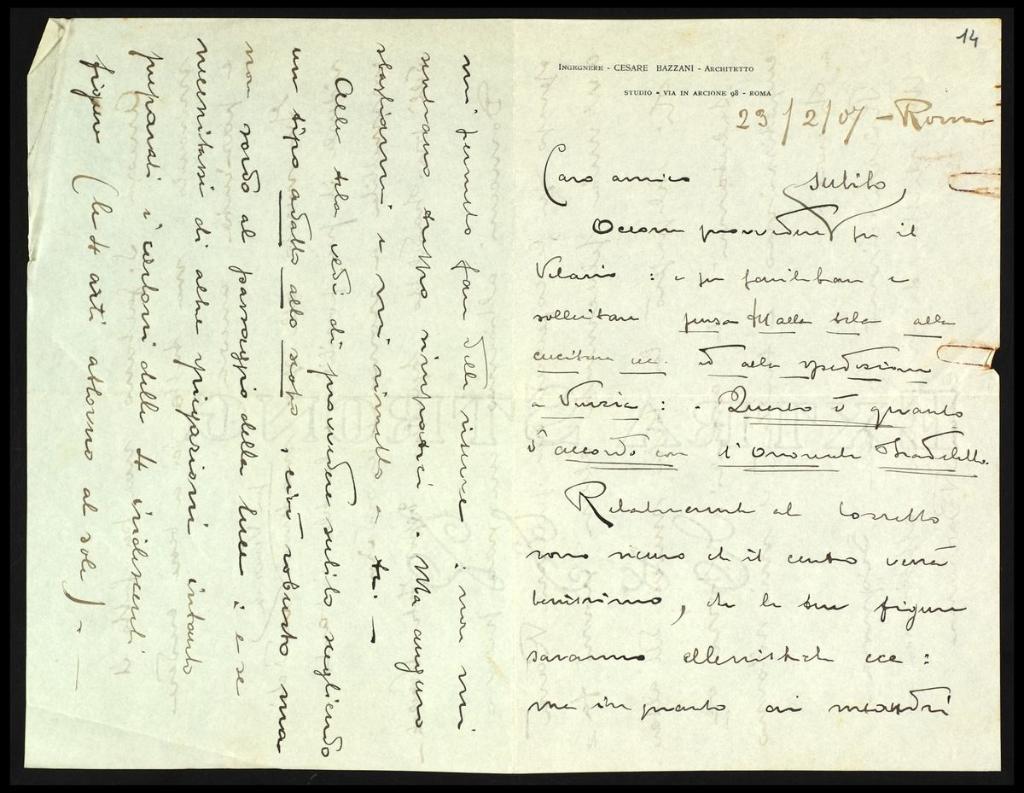 14
INGEGNERE - CESARE BAZZANI - ARCHITETTO
STUDIO - VIA IN ARCIONE 98 - ROMA
23/2/07 - Roma
Caro amico
subito
Occorre provvedere per il
Velario : e per facilitare e
sollecitare pensa tu alla tela alla
cucitura ecc. ed alla spedizione
a Venezia : - Questo è quanto
d'accordo con l'Onorevole Fradeletto.
Relativamente al bozzetto
sono sicuro che il centro verrà
benissimo, che le tue figure
saranno ecc :
ma in quanto ai meandri
mi permetto fare delle riserve : non mi
sembrano troppo simpatici. Ma auguro
sbagliarmi e mi rimetto a te. —
Alla tela vedi di provvedere subito scegliendo
un tipo adatto allo scopo, cioè robusto ma
non sordo al passaggio della luce : e se
necessitassi di altre spiegazioni intanto
preparati i cartoni delle 4 iridescenti
figure (le 4 arti attorno al sole) —